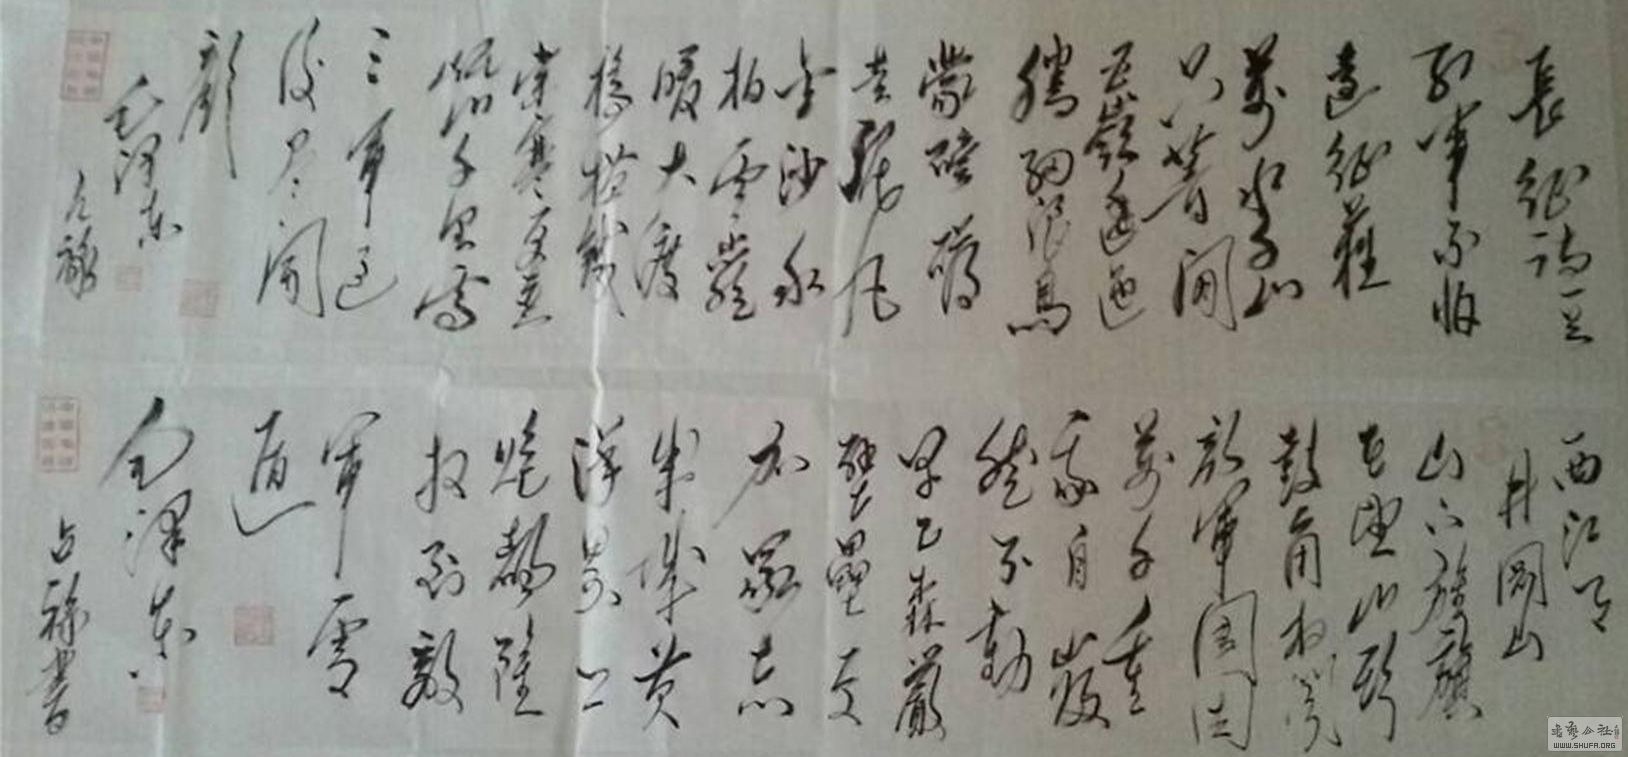 長征詩一首
紅軍不怕
遠征難
萬水千山
只等閒
五嶺逶迤
騰細浪烏
蒙磅礴
走泥丸
金沙水
拍雲崖
暖大渡
橋橫鐵
索寒更喜
岷山千里雪
三軍過
後盡開
顏
毛澤東
占祿
西江月
井岡山
山下旌旗
在望山頭
鼓角相聞
敵軍圍困
萬千重
我自巋
然不動
早已森嚴
壁壘更
加眾志
成城黃
洋界上
炮聲隆
報到敵
軍宵
遁
毛澤東
占祿書
WWW.SHUFA.ORG